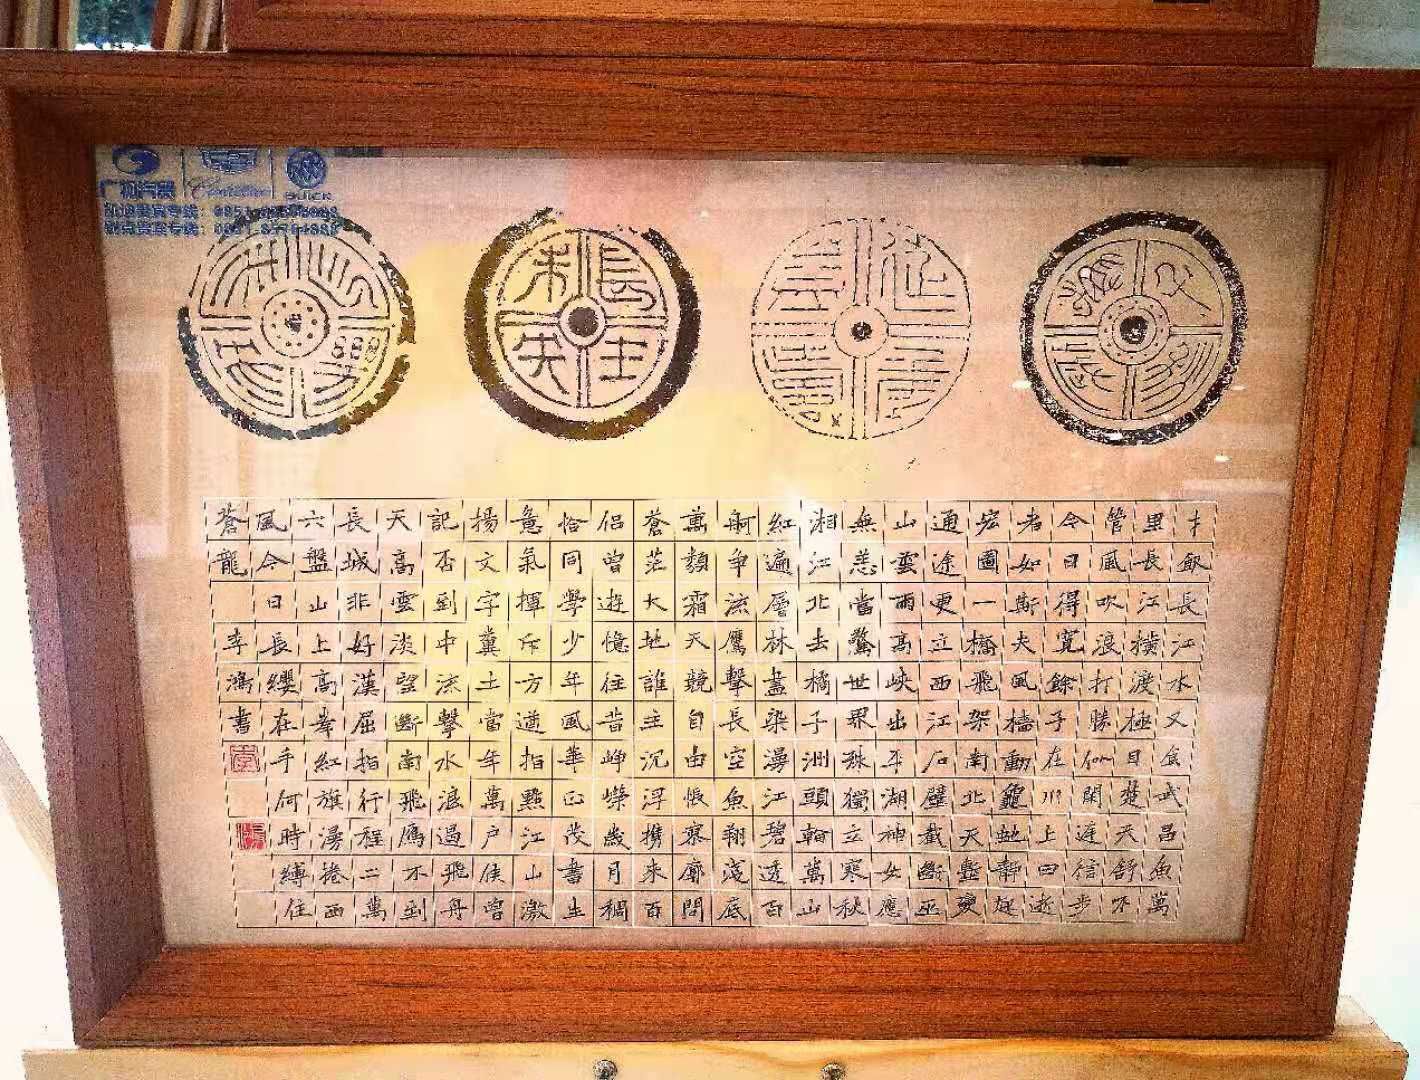 广物汽贸
BUICK
長生未央
才飲長江水又食武昌魚萬
里長江橫渡極目楚天舒不
管風吹浪打勝似閑庭信步
今日得寬餘子在川上曰逝
者如斯夫風檣動龜蛇靜起
宏圖一橋飛架南北天塹變
通途更立西江石壁截斷巫
山雲雨高峽出平湖神女應
無恙當驚世界殊獨立寒秋
湘江北去橘子洲頭看萬山
紅遍層林盡染漫江碧透百
舸爭流鷹擊長空魚翔淺底
萬類霜天競自由悵寥廓問
蒼茫大地誰主沉浮攜來百
侶曾遊憶往昔崢嶸歲月稠
恰同學少年風華正茂書生
意氣揮斥方遒指點江山激
揚文字糞土當年萬戶侯曾
記否到中流擊水浪過飛舟
天高雲淡望斷南飛雁不到
長城非好漢屈指行程二萬
六盤山上高峯紅旗漫捲西
風今日長纓在手何時縛住
蒼龍 李鴻書